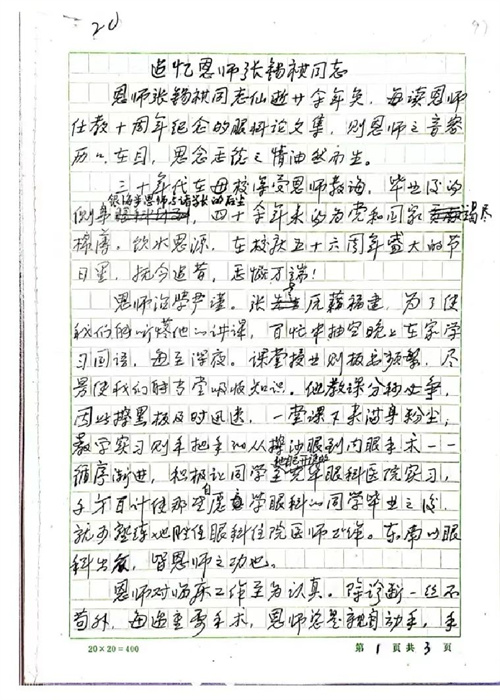 20
追忆恩师张锡祺同志
恩师张锡祺同志仙逝廿余年矣，每读恩师
任教十周年纪念的眼科论文集，则恩师之音容
历历在目，思念恩德之情油然而生。
三十年代在母校深受恩师教诲，毕业后的
侧身，四十余年来的为党和国家竭尽
棉薄，饮水思源，在校庆五十六周年盛大的节
日里，抚今追昔，感慨万端！
恩师治学严谨。张师原籍福建，为了使
我们能听懂他的讲课，百忙中抽空晚上在家学
习国语，每至深夜。课堂授业则板书频繁，尽
量使我们能当堂吸收知识。他教课分秒必争，
因此擦黑板及时迅速，一堂课下来满身粉尘，
教学实习则手把手的从擦沙眼到内眼手术一一
循序渐进，积极让同学至光华眼科医院实习，
千方百计使那些自愿学眼科的同学毕业之后，
就可熟练地胜任眼科住院医师工作。东南以眼
科出众，皆恩师之功也。
恩师对临床工作至为认真。除诊断一丝不
苟外，每遇重要手术，恩师总是亲自动手，手
20×20=400
第1页共3页